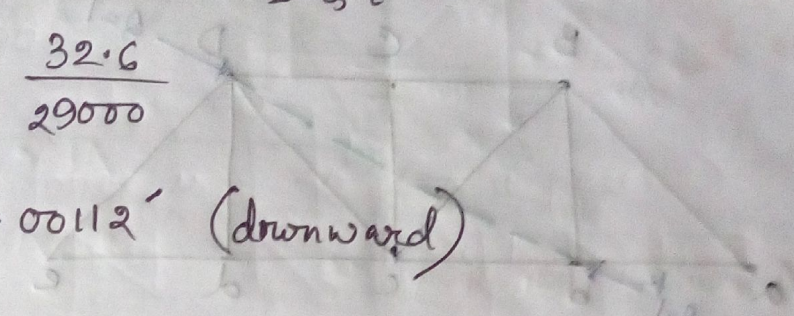 32.6
29000
00112' (downward)